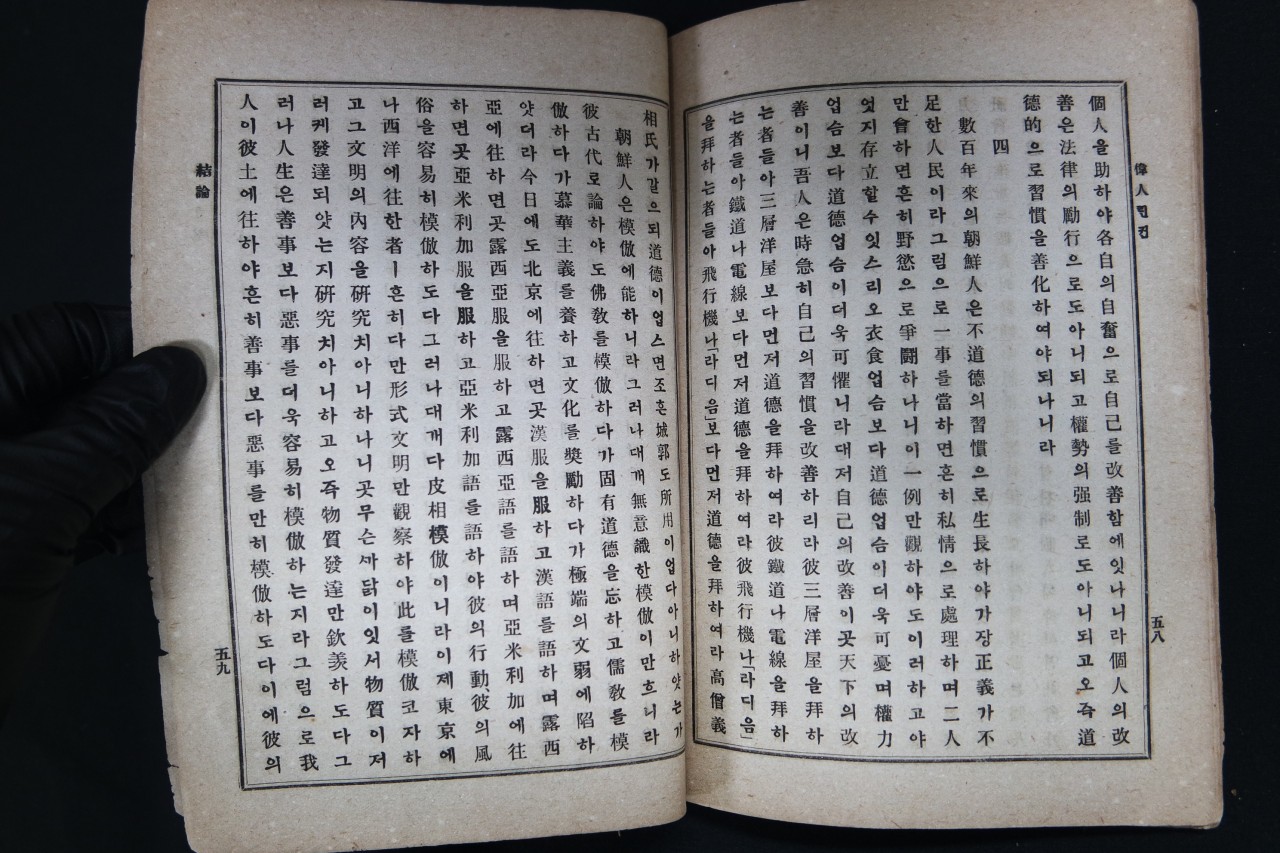 偉人린컨
五八
個人을助하야各自의自奮으로自己를改善함에잇나니라個人의改
善은法律의勵行으로도아니되고權勢의强制로도아니되고오즉道
德的으로習慣을善化하여야되나니라
四
數百年來의朝鮮人은不道德의習慣으로生長하야가장正義가不
足한人民이라그럼으로一事를當하면흔히私情으로處理하며二人
만會하면흔히野慾으로爭鬪하나니이一例만觀하야도이러하고야
엇지存立할수잇스리오衣食업슴보다道德업슴이더욱可憂며權力
업슴보다道德업슴이더욱可懼니라대저自己의改善이곳天下의改
善이니吾人은時急히自己의習慣을改善하리라彼三層洋屋을拜하
는者들아三層洋屋보다먼저道德을拜하여라彼鐵道나電線을拜하
는者들아鐵道나電線보다먼저道德을拜하여라彼飛行機나「라디음」
을拜하는者들아飛行機나「라디음」보다먼저道德을拜하여라高僧義
相氏가갈으되道德이업스면조흔城郭도所用이업다아니하얏는가
朝鮮人은模倣에能하니라그러나대개無意識한模倣이만흐니라
彼古代로論하야도佛敎를模倣하다가固有道德을忘하고儒敎를模
倣하다가慕華主義를養하고文化를奬勵하다가極端의文弱에陷하
얏더라今日에도北京에往하면곳漢服을服하고漢語를語하며露西
亞에往하면곳露西亞服을服하고露西亞語를語하며亞米利加에往
하면곳亞米利加服을服하고亞米利加語를語하야彼의行動、彼의風
俗을容易히模倣하도다그러나대개다皮相模倣이니라이제東京에
나西洋에往한者ㅣ흔히다만形式文明만觀察하야此를模倣코자하
고그文明의內容을硏究치아니하나니곳무슨ᄭᅡ닭이잇서物質이저
러케發達되얏는지硏究치아니하고오즉物質發達만欽羨하도다그
러나人生은善事보다惡事를더욱容易히模倣하는지라그럼으로我
人이彼土에往하야흔히善事보다惡事를만히模倣하도다이에彼의
結論
五九